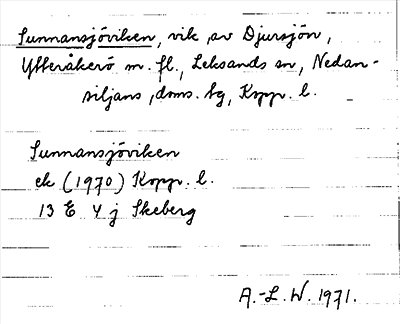 Sunnansjöviken, vik av Djursjön,
Ytteråkerö m. fl., Leksands sn, Nedan-
siljans doms. tg, Kopp. l.
Sunnansjöviken
ek (1970) Kopp. l.
13 E 4 j Skeberg
A.-L. W. 1971.